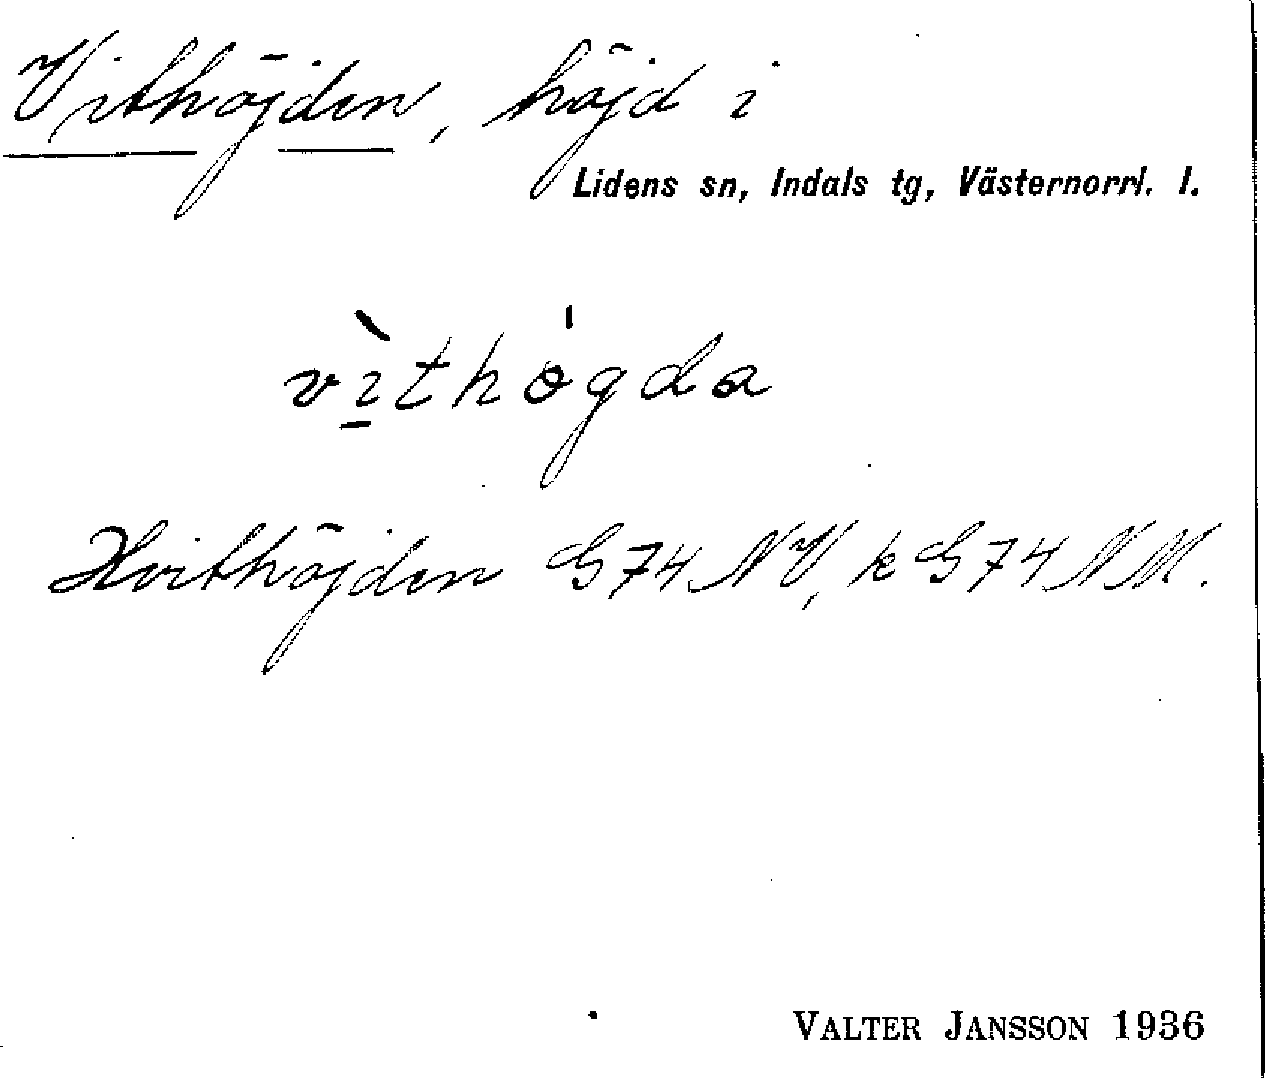 Vithöjden, höjd i
Lidens sn, Indals tg, Västernorrl. l.
vìthögda
Hvithöjden G74NV, k G74NM.
VALTER JANSSON 1936